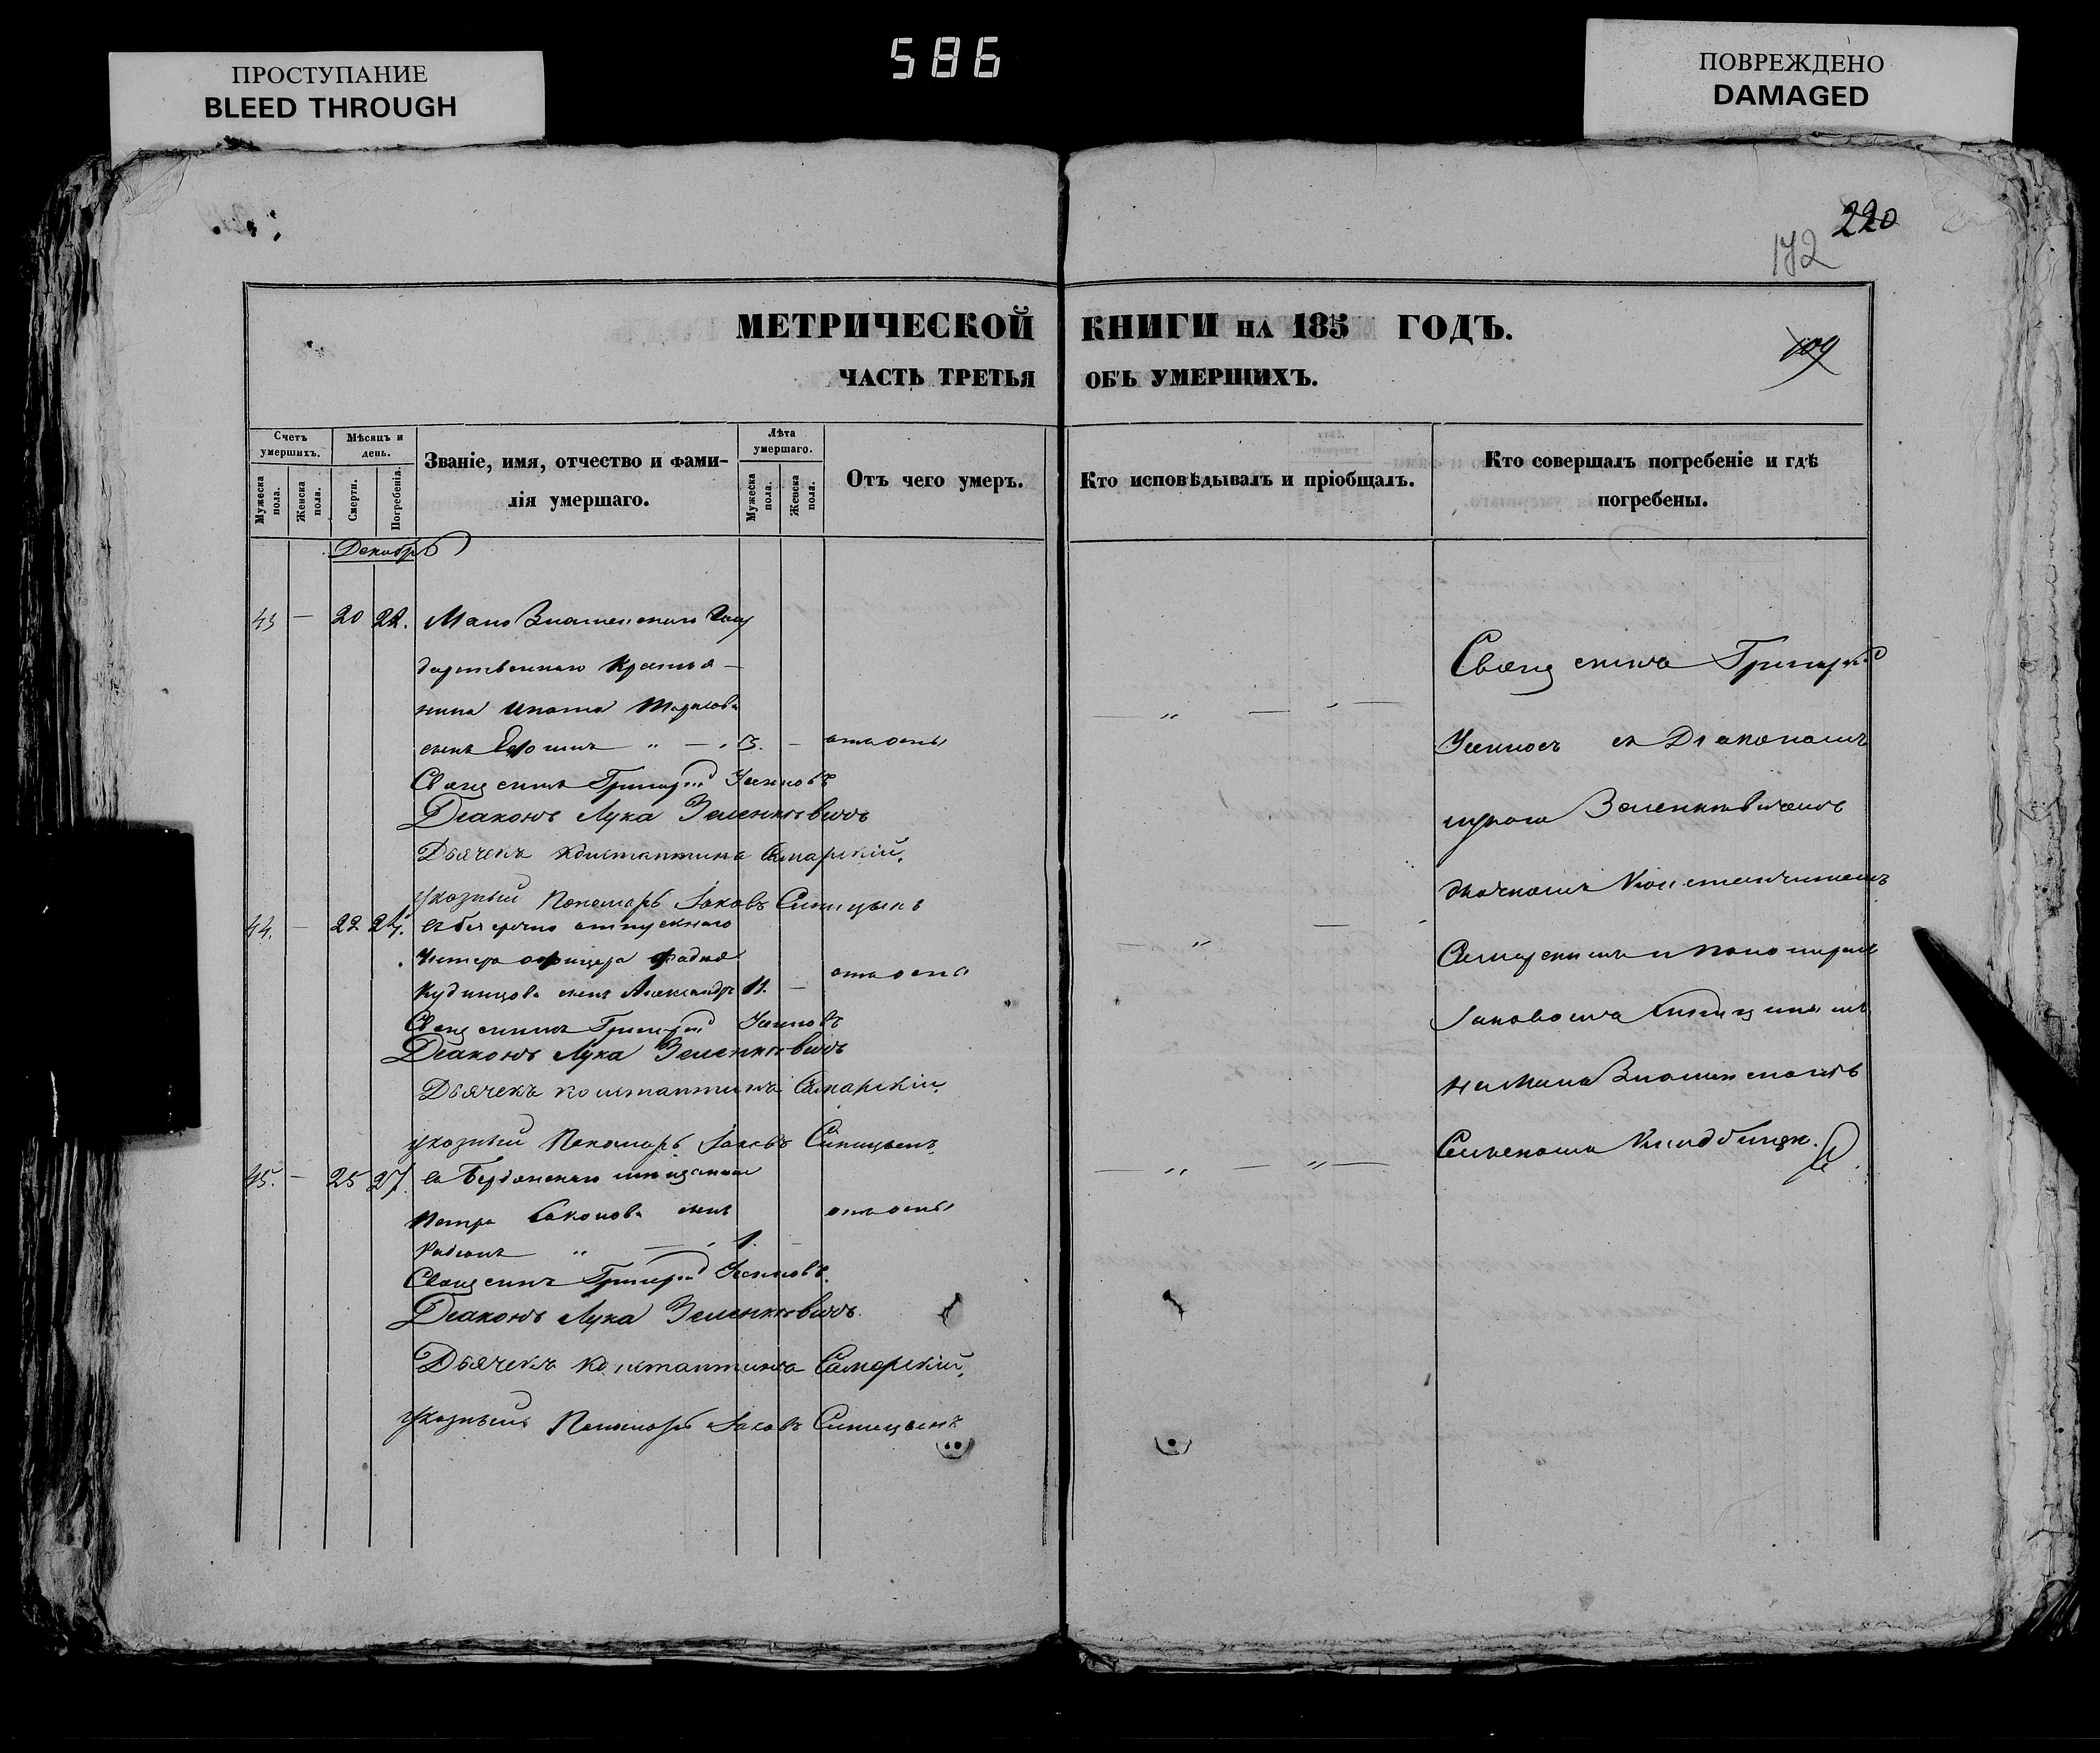 ПРОСТУПАНИЕ
BLEED THROUGH
586
ПОВРЕЖДЕНО
DAMAGED
220
172
МЕТРИЧЕСКОЙ КНИГИ НА 185 ГОДЪ.
109
ЧАСТЬ ТРЕТЬЯ ОБЪ УМЕРШИХЪ.
Счетъ умершихъ.
Мужеска пола.
Женска пола.
Мѣсяцъ и день.
Смерти.
Погребенія.
Званіе, имя, отчество и фами-
лія умершаго.
Лѣта умершаго.
Мужеска пола.
Женска пола.
Отъ чего умеръ.
Кто исповѣдывалъ и пріобщалъ.
Кто совершалъ погребеніе и гдѣ
погребены.
Декабрь
43 — 20 22. Мало Знаменскаго Госу
дарственнаго Крестья—
нина Ипата Тарасова
сынъ Ефимъ " — " 3. — отъ оспы
Священникъ Григорій Устиновъ
Діаконъ Лука Зеленкевичъ
Дьячекъ Константинъ Самарскій.
Указный Пономарь Іаковъ Синицынъ
44. — 22 24. безсрочно отпускнаго
Унтеръ офицера Фадея
Кудинцова сынъ Александръ 11. — отъ оспы
Священникъ Григорій Устиновъ
Діаконъ Лука Зеленкевичъ
Дьячекъ Константинъ Самарскій.
указный Пономарь Іаковъ Синицынъ.
45. — 25 27. Бердянскаго мещанина
Петра сынъ отъ оспы
" — " 1. —
Священникъ Григорій Устиновъ.
Діаконъ Лука Зеленкевичъ.
Дьячекъ Константинъ Самарскій.
Указный Пономарь Іаковъ Синицынъ
Священникъ Григорій
Устиновъ съ Діакономъ
Лукою Зеленкевичемъ
дьячкомъ Константиномъ
Самарскимъ и пономаремъ
Іаковомъ Синицынымъ
на Мало Знаменскомъ
Сельскомъ Кладбищѣ.